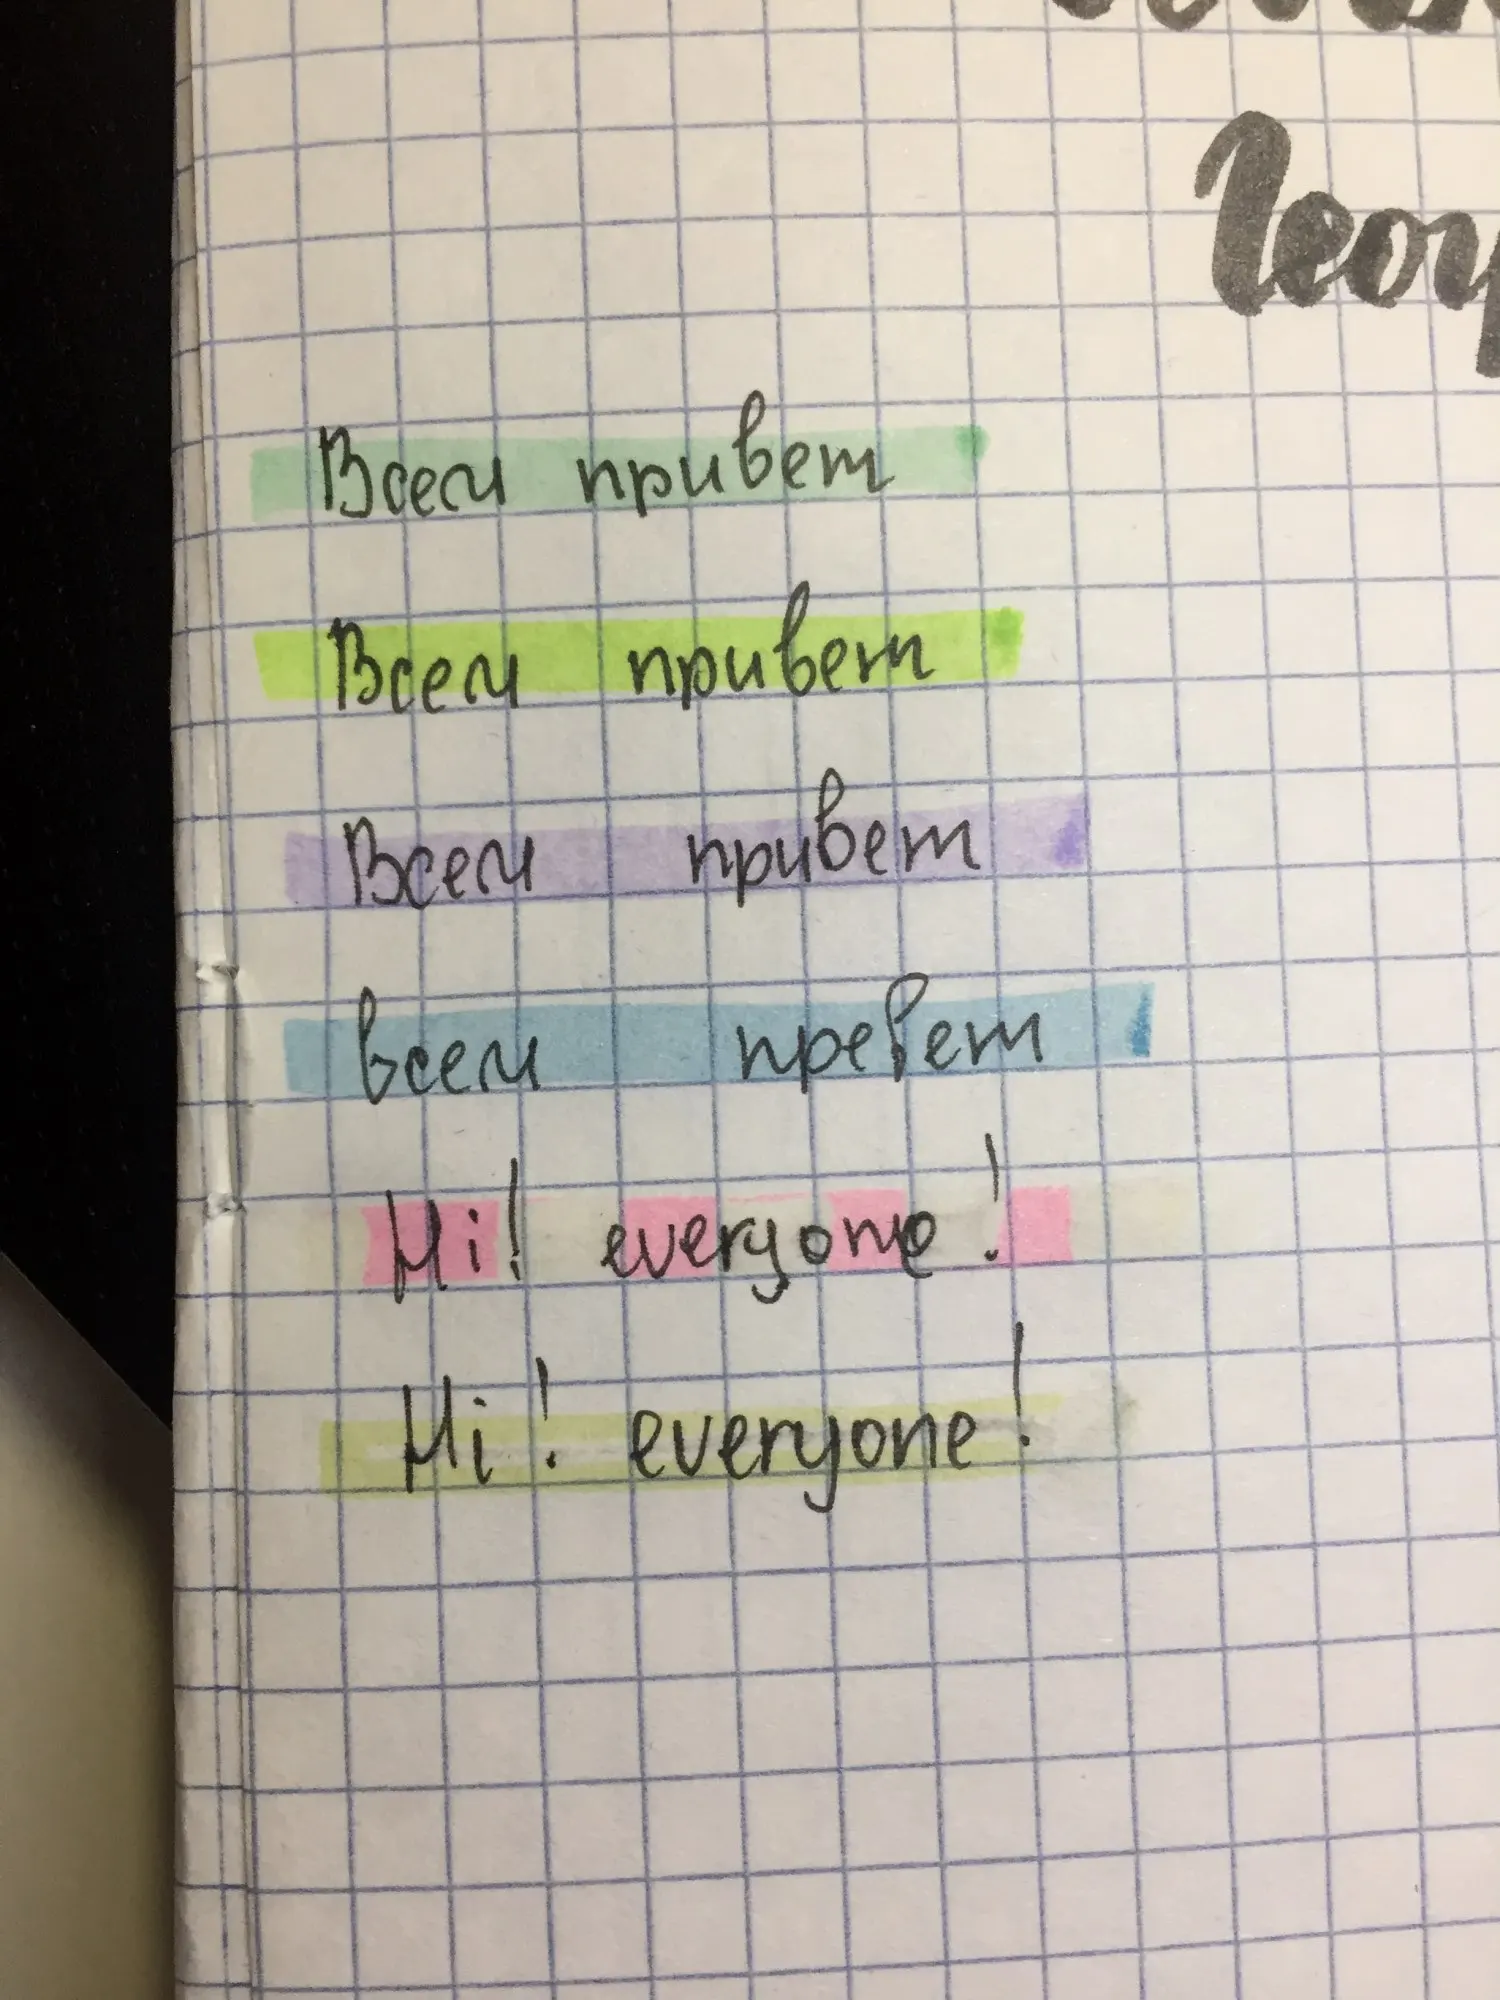 Всем привет
Всем привет
Всем привет
всем превет
Hi! everyone!
Hi! everyone!